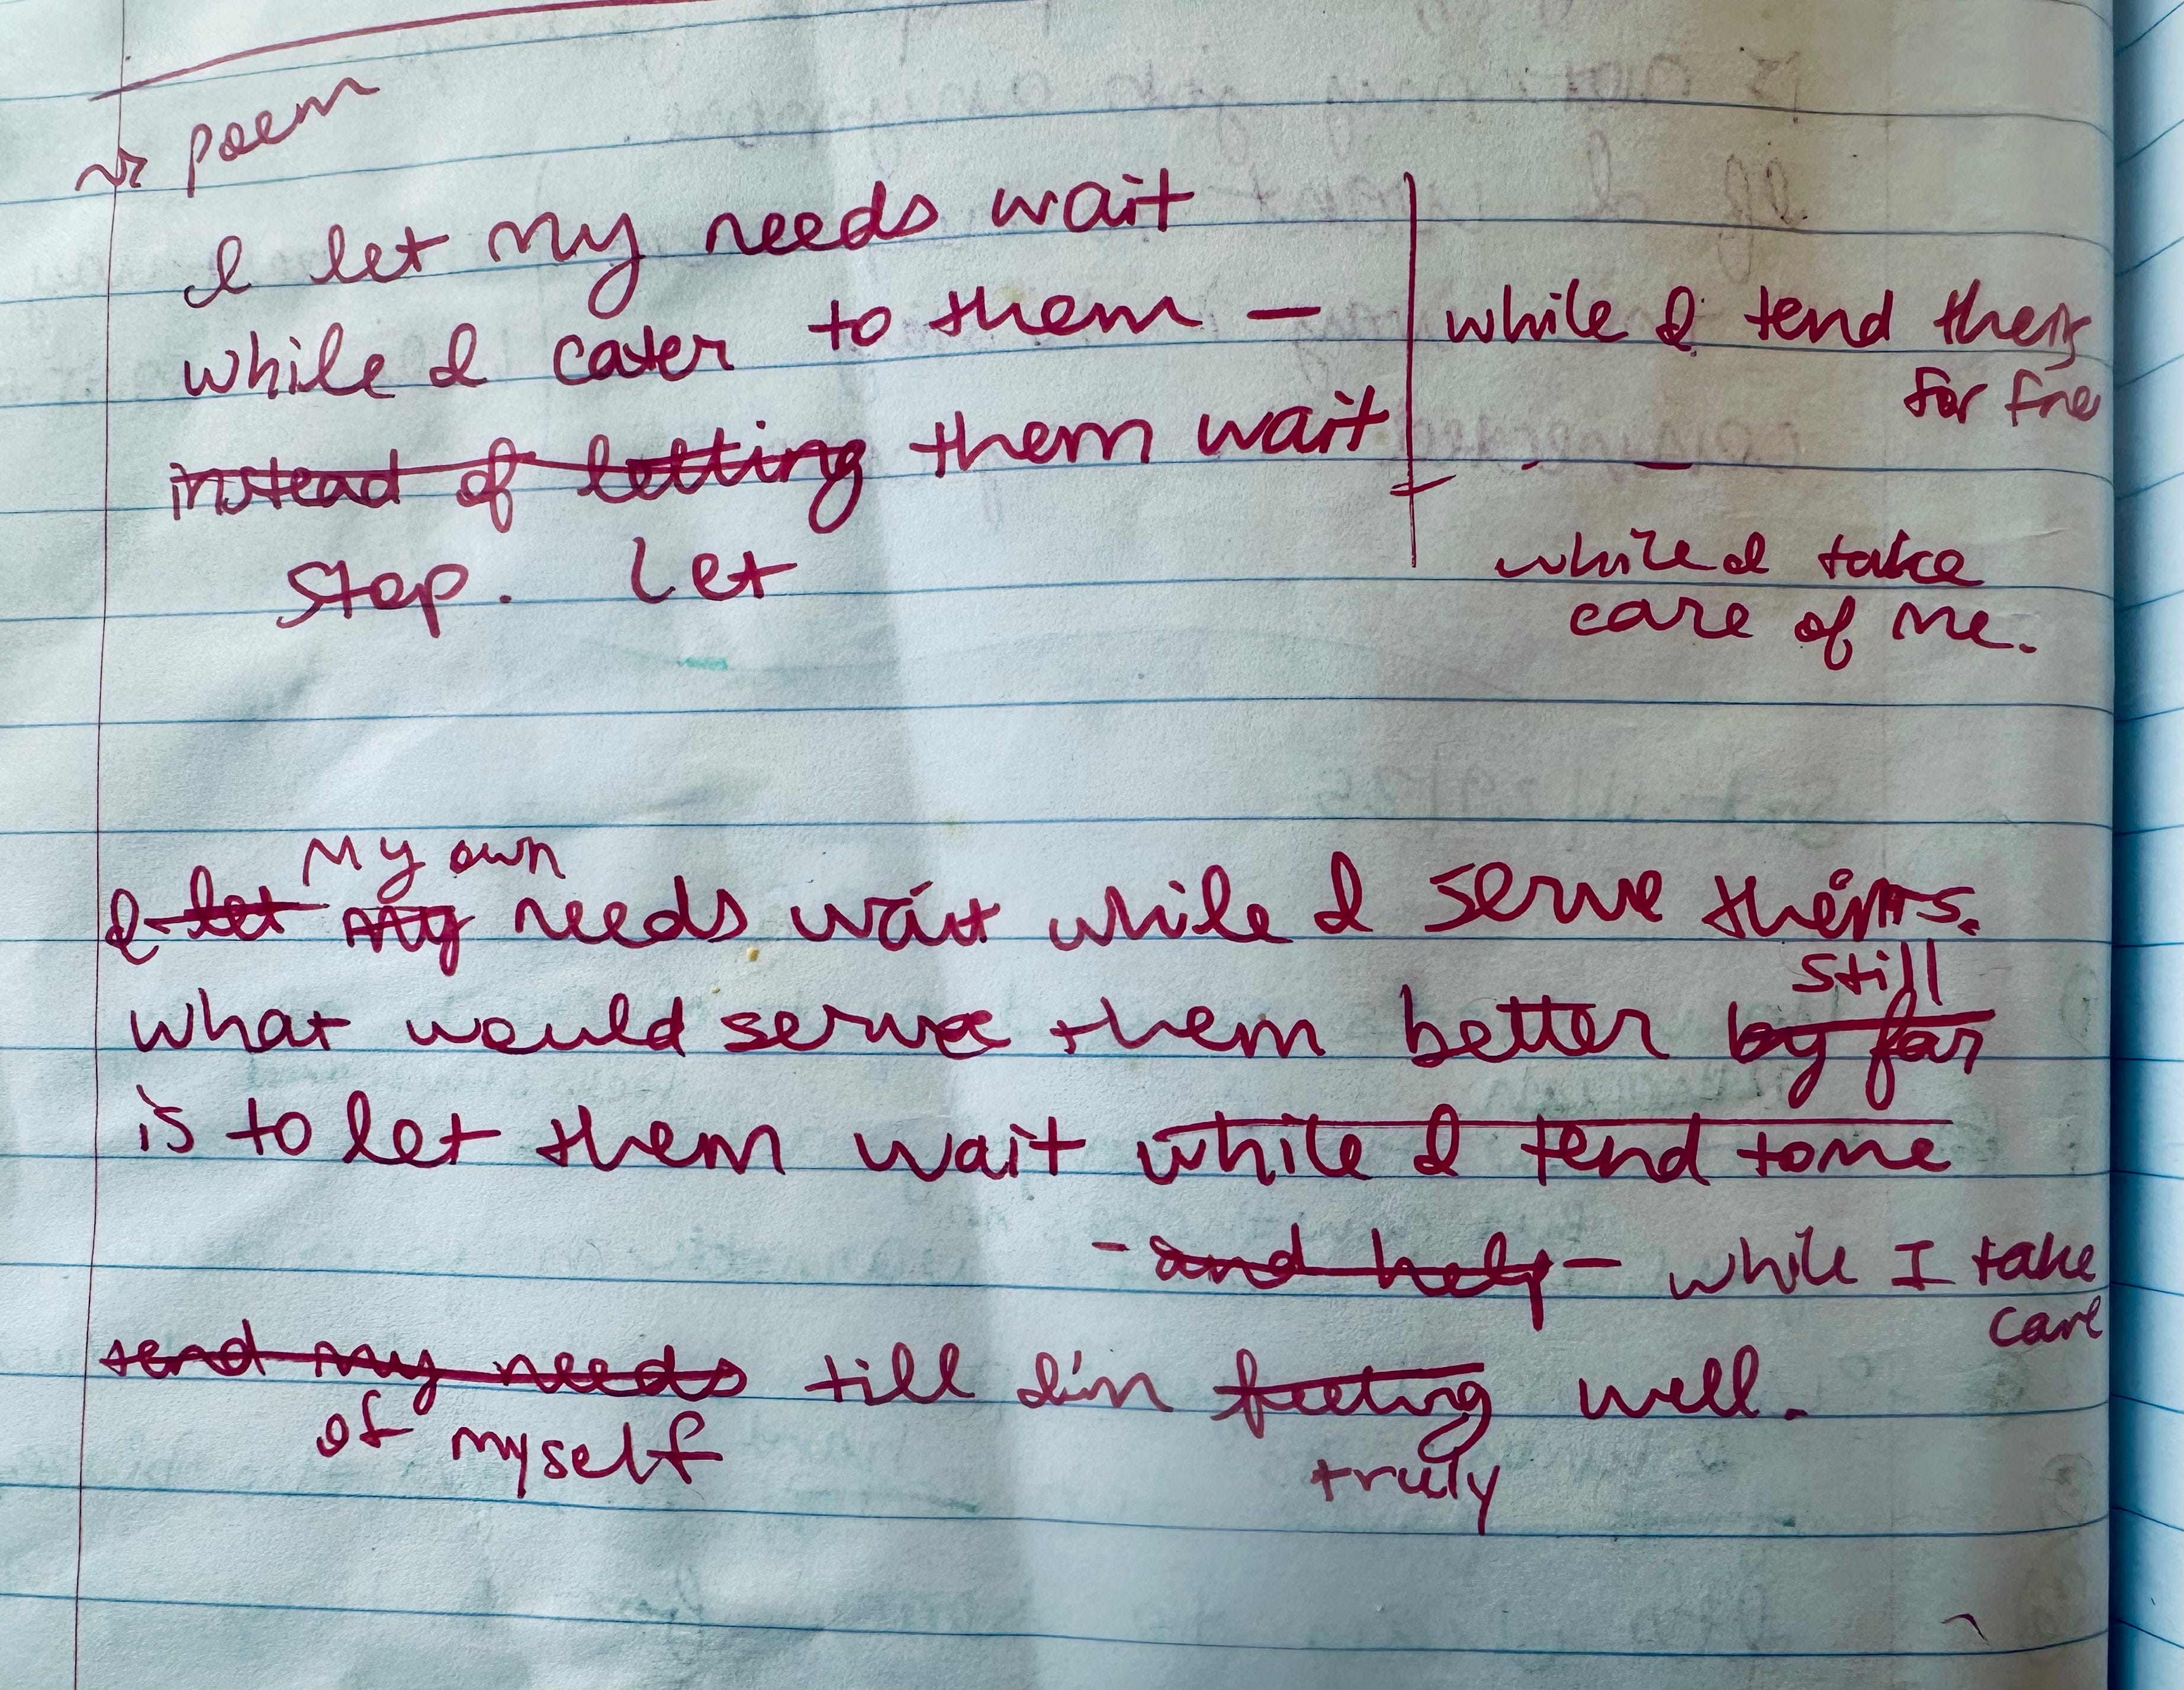 poem
I let my needs wait
while I cater to them —
instead of letting them wait
Stop. Let
while I tend theirs
for free
while I take
care of me.
My own
I let my needs wait while I serve theirs.
still
what would serve them better by far
is to let them wait while I tend to me
- and help - while I take
care
tend my needs till I'm feeling well.
of myself
truly